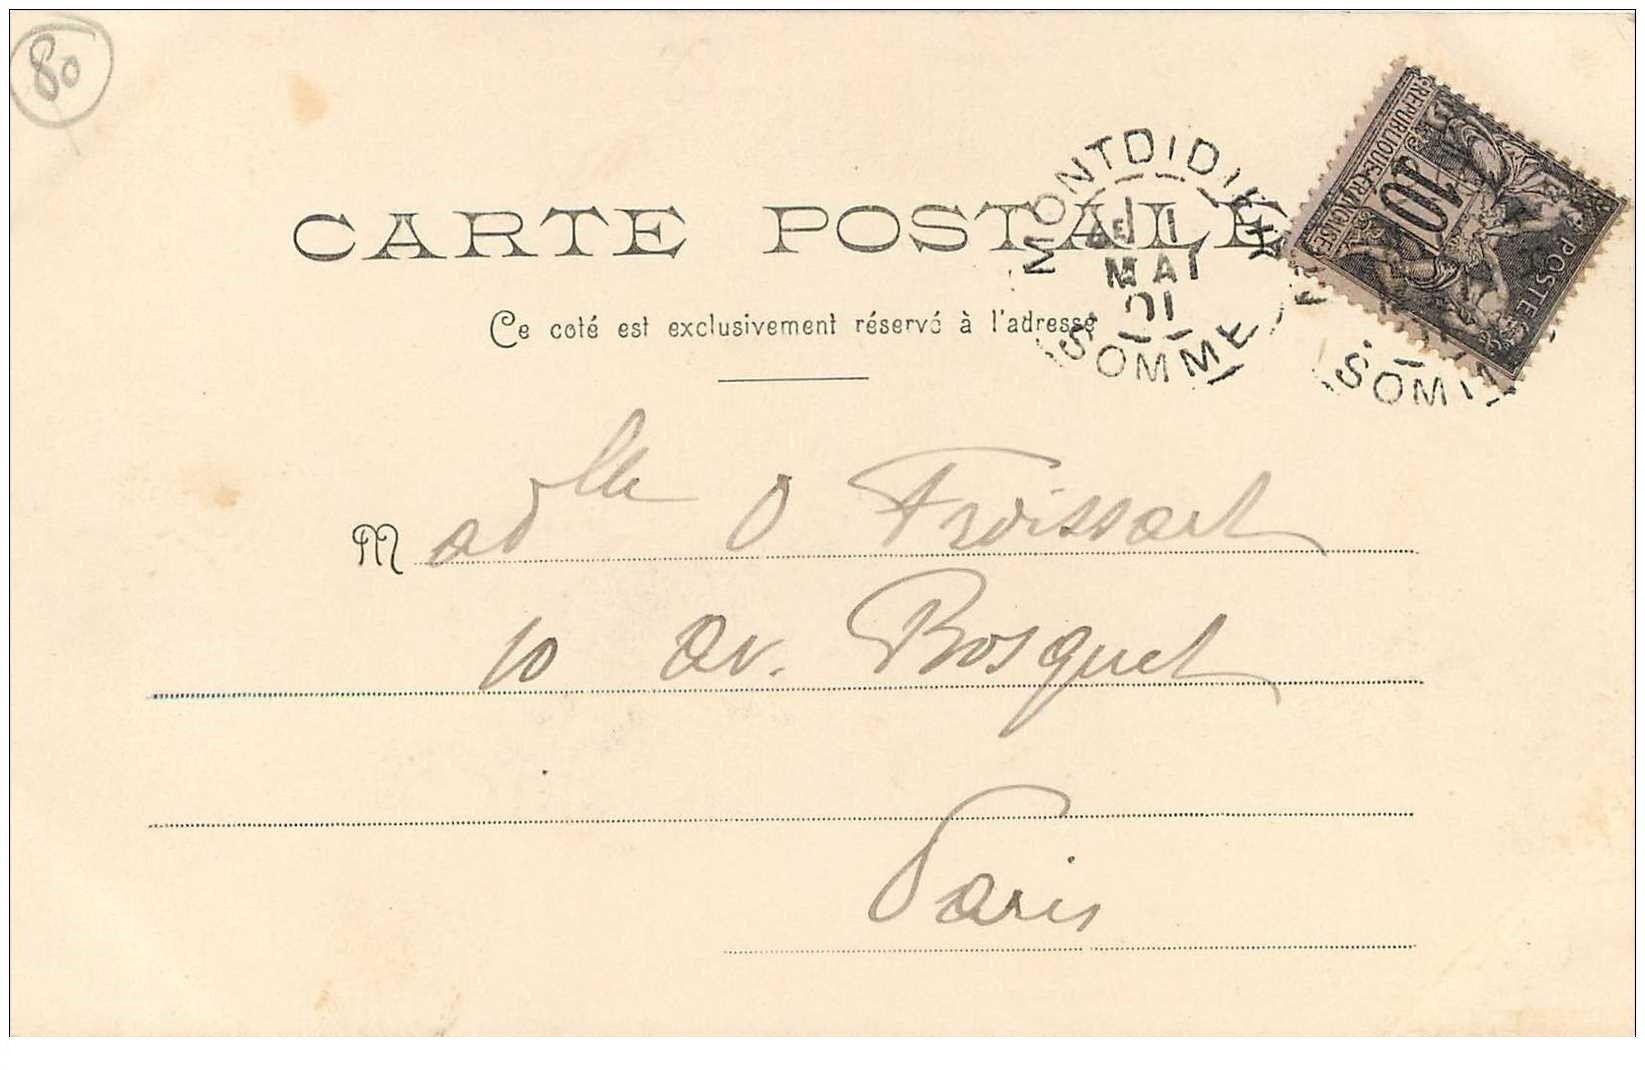 80
CARTE POSTALE
Ce coté est exclusivement réservé à l'adresse
MONTDIDIER
1
MAI
01
SOMME
REPUBLIQUE FRANÇAISE
10
POSTE
SOMM
Madlle O Froissart
10 av. Bosquet
Paris